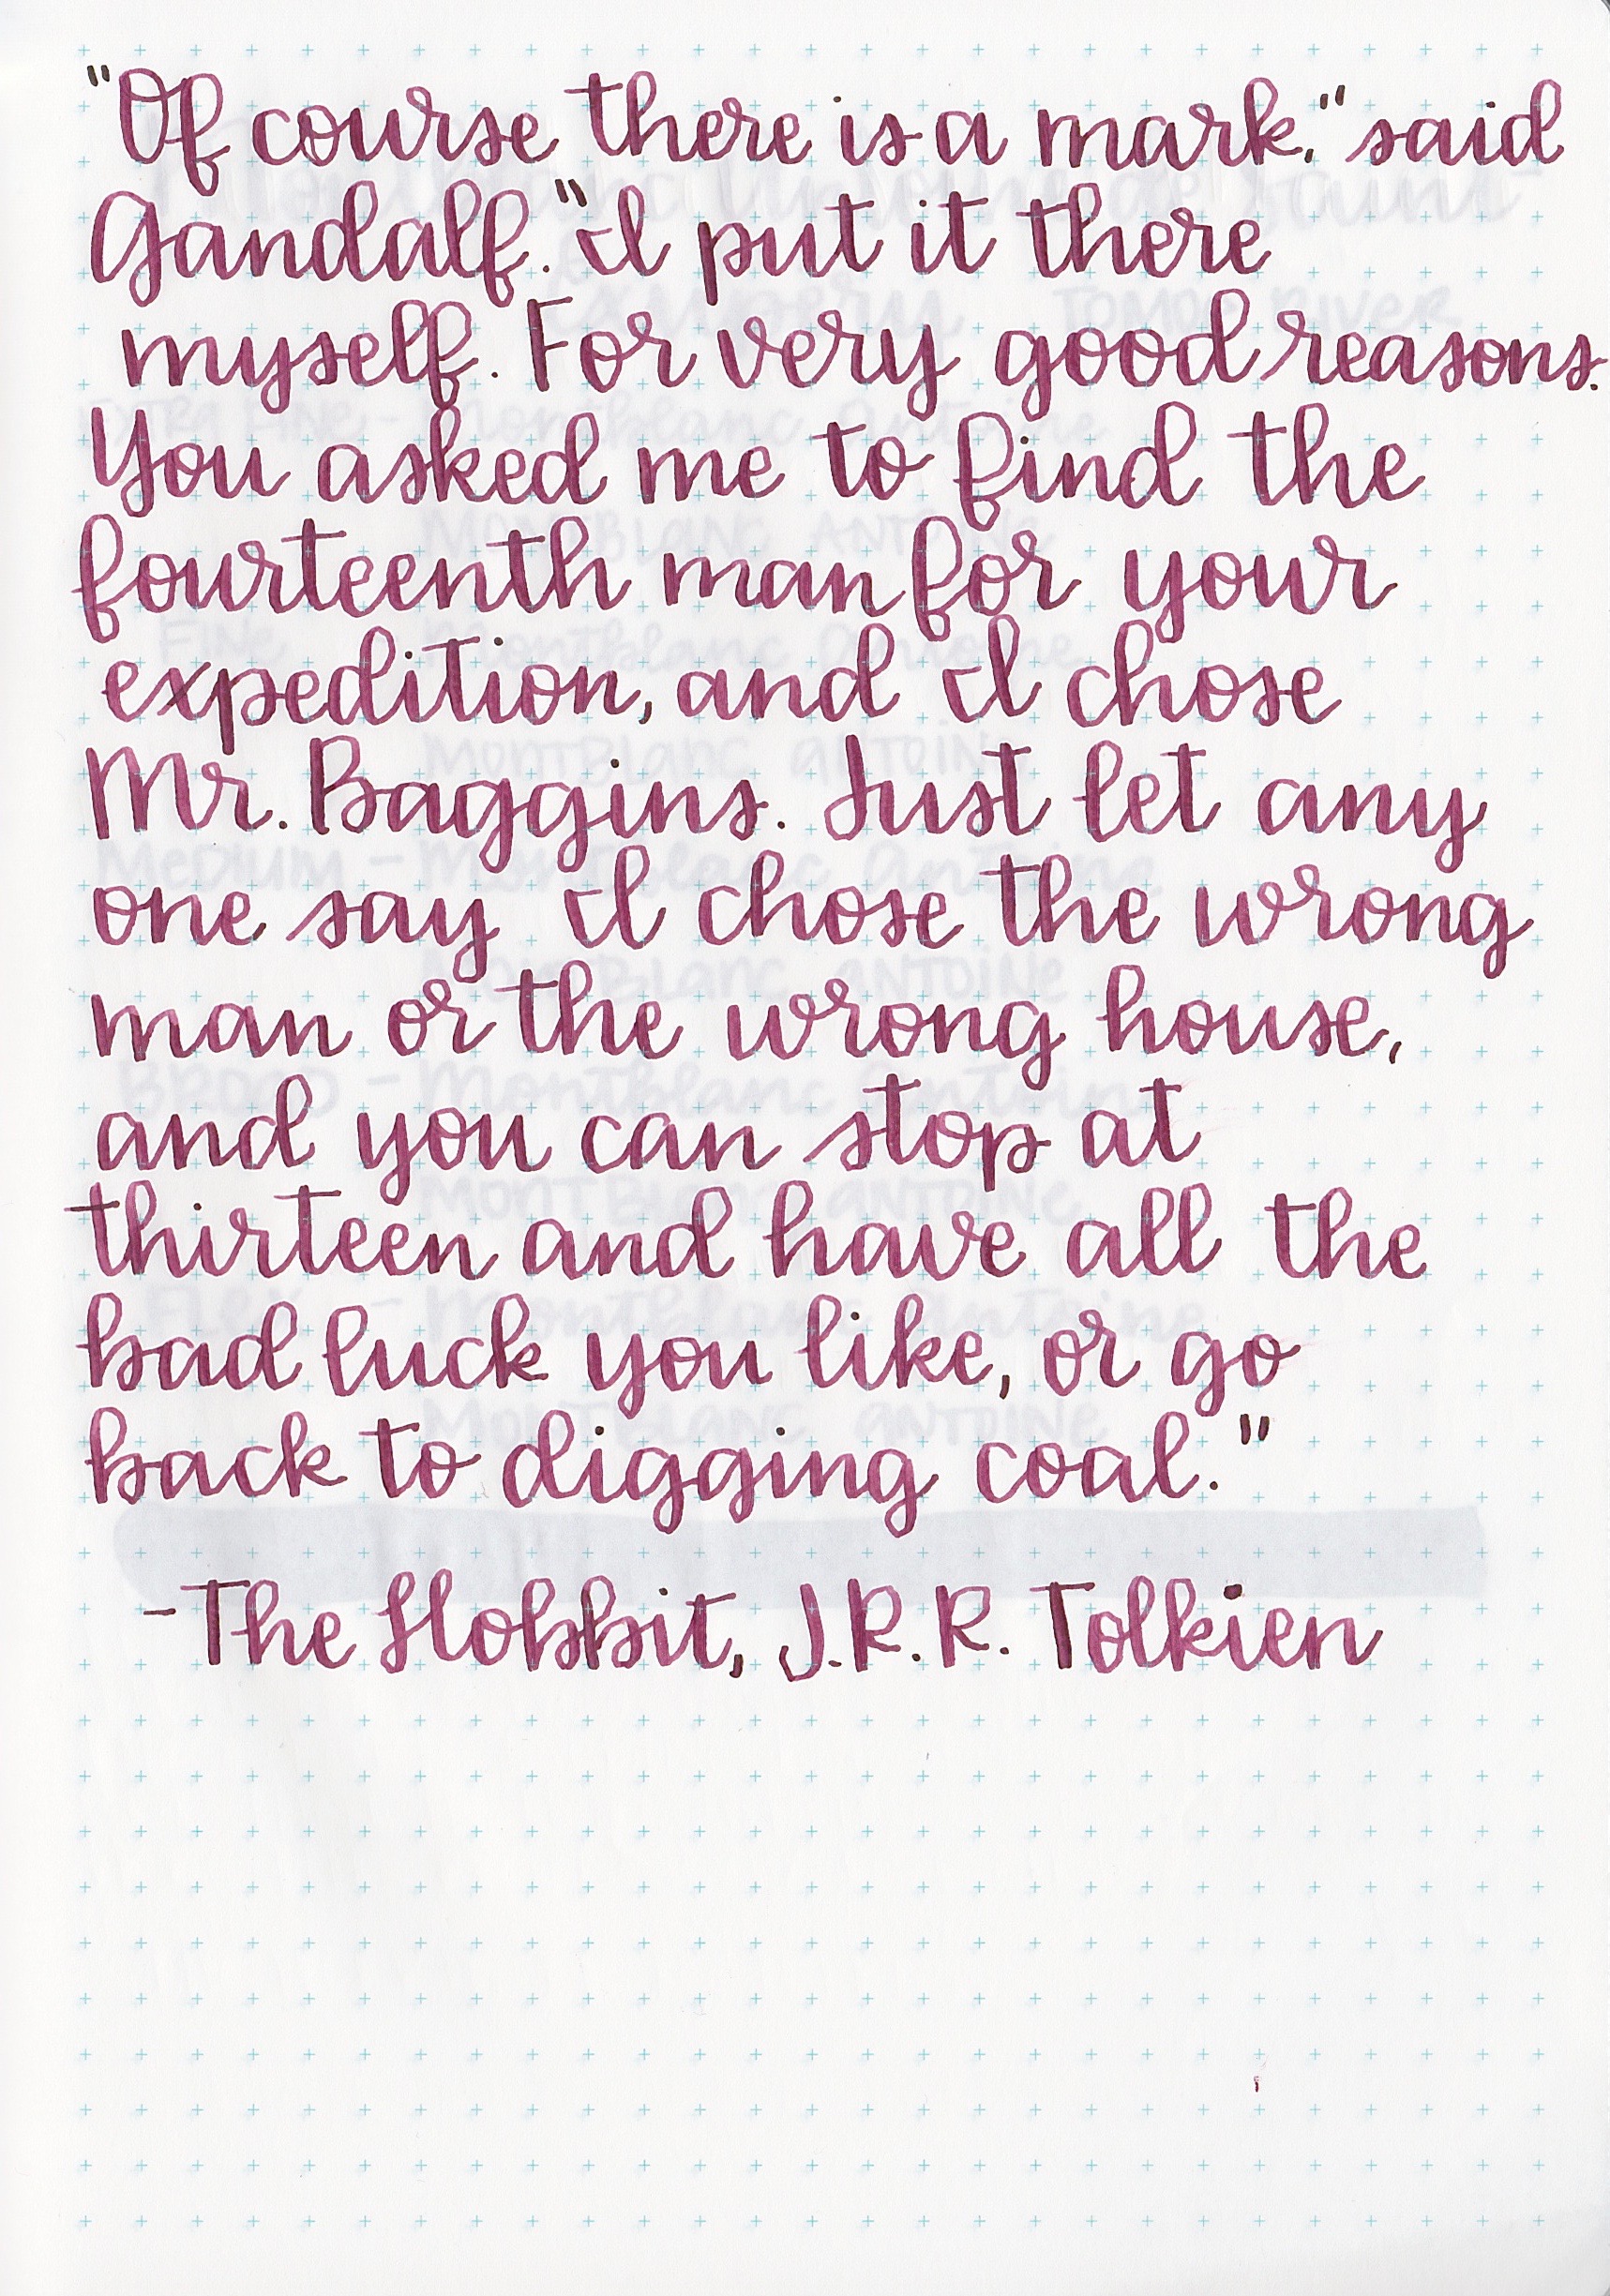 "Of course there is a mark," said
Gandalf. "I put it there
myself. For very good reasons.
You asked me to find the
fourteenth man for your
expedition, and I chose
Mr. Baggins. Just let any
one say I chose the wrong
man or the wrong house,
and you can stop at
thirteen and have all the
bad luck you like, or go
back to digging coal."
-The Hobbit, J.R.R. Tolkien